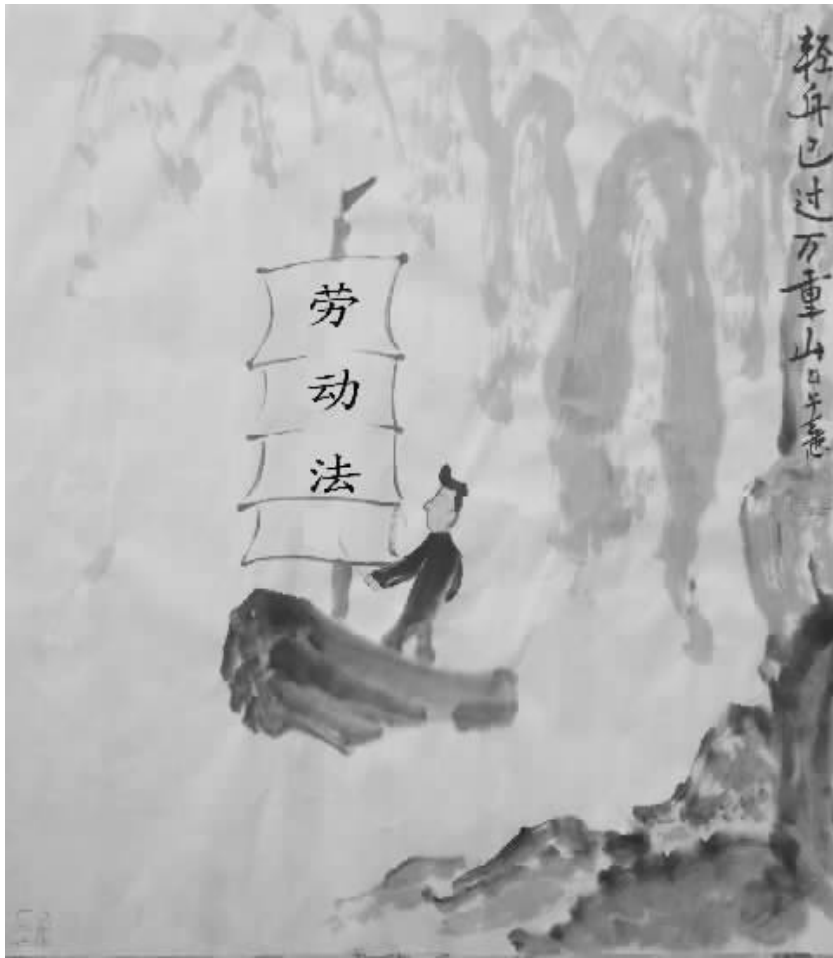 轻舟已过万重山
劳
动
法